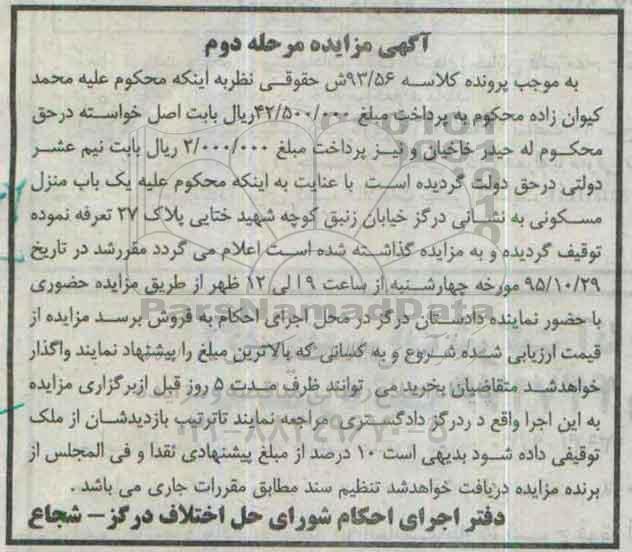 آگهی مزایده مرحله دوم
به موجب پرونده کلاسه ۹۳/۵۶ش حقوقی نظربه اینکه محکوم علیه محمد
کیوان زاده محکوم به پرداخت مبلغ ۴۲/۵۰۰/۰۰۰ریال بابت اصل خواسته درحق
محکوم له حیدر خاخیان و نیز پرداخت مبلغ ۲/۰۰۰/۰۰۰ ریال بابت نیم عشر
دولتی درحق دولت گردیده است با عنایت به اینکه محکوم علیه یک باب منزل
مسکونی به نشانی درگز خیابان زنبق کوچه شهید ختایی پلاک ۲۷ تعرفه نموده
توقیف گردیده و به مزایده گذاشته شده است اعلام می گردد مقررشد در تاریخ
۹۵/۱۰/۲۹ مورخه چهارشنبه از ساعت ۹ الی ۱۲ ظهر از طریق مزایده حضوری
با حضور نماینده دادستان درگز در محل اجرای احکام به فروش برسد مزایده از
قیمت ارزیابی شده شروع و به کسانی که بالاترین مبلغ را پیشنهاد نمایند واگذار
خواهدشد متقاضیان بخرید می توانند ظرف مدت ۵ روز قبل ازبرگزاری مزایده
به این اجرا واقع د ردرگز دادگستری مراجعه نمایند تاترتیب بازدیدشان از ملک
توقیفی داده شود بدیهی است ۱۰ درصد از مبلغ پیشنهادی نقدا و فی المجلس از
برنده مزایده دریافت خواهدشد تنظیم سند مطابق مقررات جاری می باشد .
دفتر اجرای احکام شورای حل اختلاف درگز – شجاع
ParsNamadData
۰۲۱-۸۸۳۴۹۶۷۰-۵